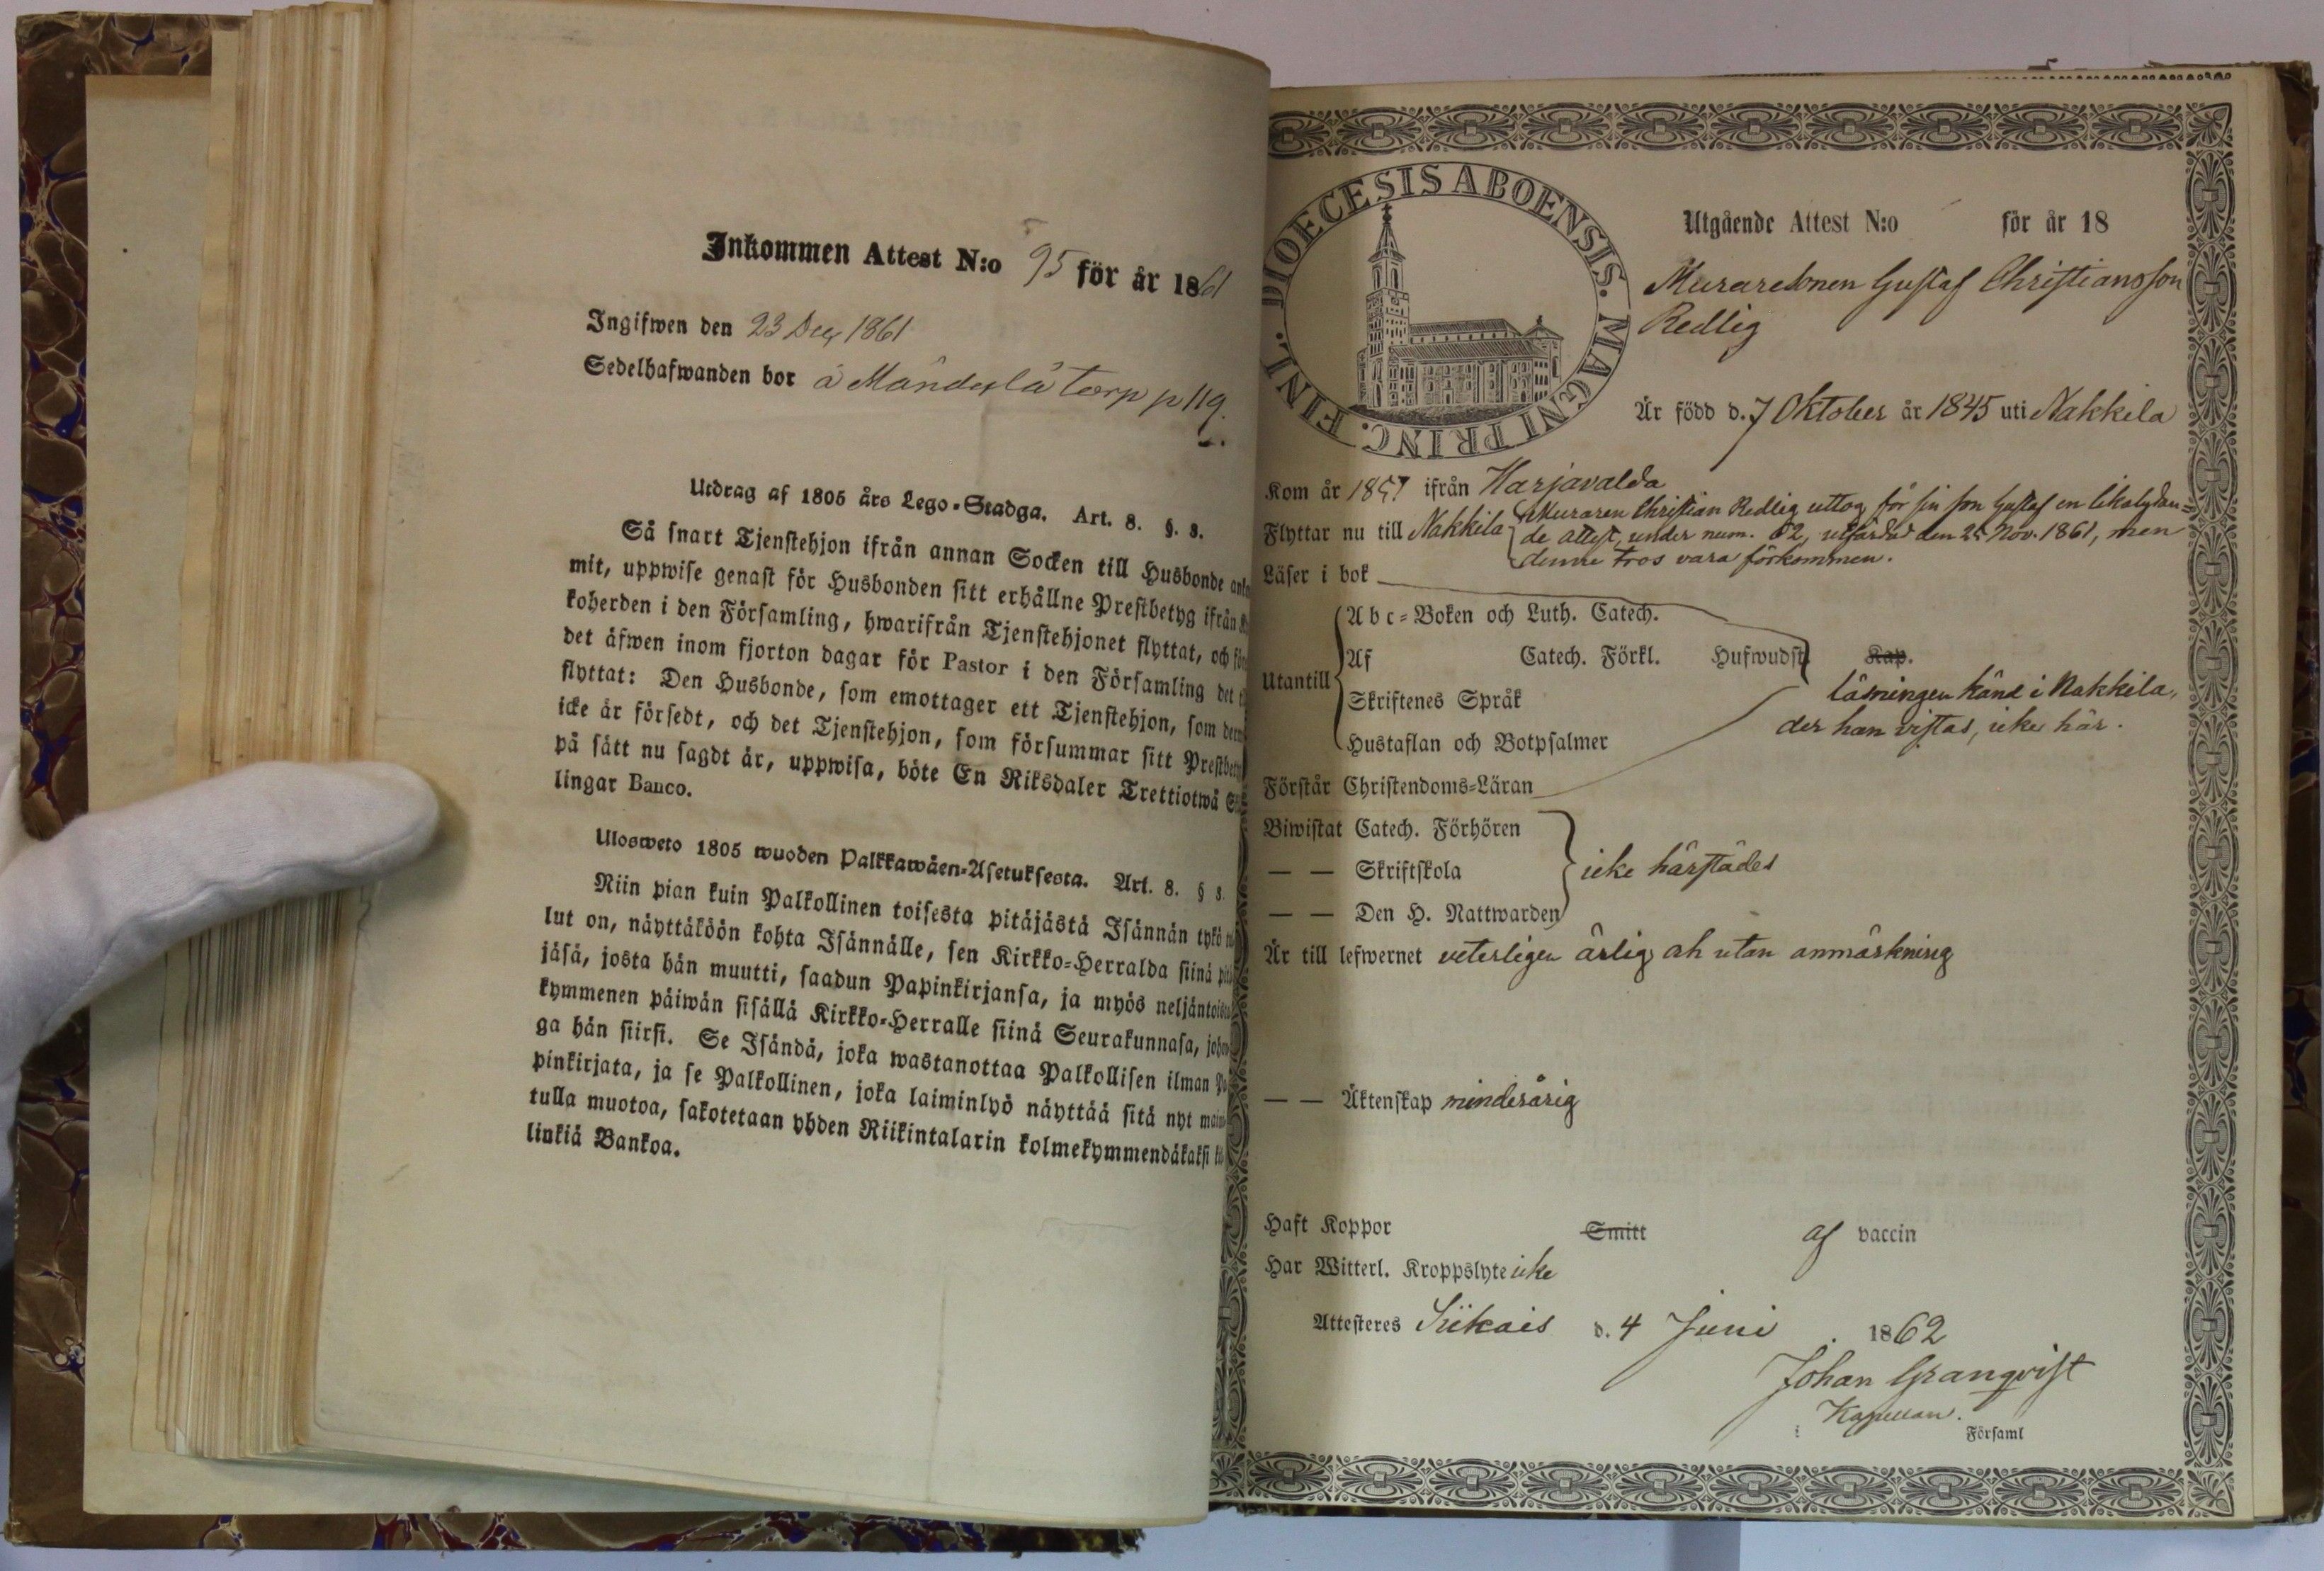 Inkommen Attest N:o 95 för år 1861
Ingifwen den 23 Dec 1861
Sedelhafwanden bor å torp p 119.
Utdrag af 1805 års Lego-Stadga. Art. 8. §. 8.
Så snart Tjenstehjon ifrån annan Socken till Husbonde
mit, uppwise genast för Husbonden sitt erhållne Prestbetyg ifrån
koherden i den Församling, hwarifrån Tjenstehjonet flyttat, och
det äfwen inom fjorton dagar för Pastor i den Församling det
flyttat: Den Husbonde, som emottager ett Tjenstehjon, som
icke är försedt, och det Tjenstehjon, som försummar sitt
på sätt nu sagdt är, uppwisa, böte En Riksdaler Trettiotwå
lingar Banco.
Ulosweto 1805 wuoden Palkkawäen-Asetuksesta. Art. 8. § 8.
Niin pian kuin Palkollinen toisesta pitäjästä Isännän tykö
lut on, näyttäköön kohta Isännälle, sen Kirkko-Herralda siinä
jäsä, josta hän muutti, saadun Papinkirjansa, ja myös
kymmenen päiwän sisällä Kirkko-Herralle siinä Seurakunnasa,
ga hän siirsi. Se Isändä, joka wastanottaa Palkollisen ilman
pinkirjata, ja se Palkollinen, joka laiminlyö näyttää sitä nyt
tulla muotoa, sakotetaan yhden Riikintalarin kolmekymmendäkaksi
linkiä Bankoa.
DIOECESIS ABOENSIS. MAGNI PRINC. FINL.
Utgående Attest N:o för år 18
Muraresonen Gustaf Christiansson
Redlig
Är född d. 7 Oktober år 1845 uti Nakkila
Kom år 1857 ifrån Harjavalda
Flyttar nu till Nakkila
Muraren Christian Redlig uttog för sin son Gustaf en likalydan-
de attest, under num. 62, utfärdad den 25 Nov. 1861, men
denne tros vara förkommen.
Läser i bok
Utantill
Abc-Boken och Luth. Catech.
Af Catech. Förkl. Hufwudst Kap.
Skriftenes Språk
Hustaflan och Botpsalmer
läsningen känd i Nakkila,
der han vistas, icke här.
Förstår Christendoms-Läran
Biwistat Catech. Förhören
— — Skriftskola icke härstädes
— — Den H. Nattwarden
Är till lefwernet veterligen ärlig och utan anmärkning
— — Äktenskap minderårig
Haft Koppor Smitt af vaccin
Har Witterl. Kroppslyte icke
Attesteres Siikais d. 4 Juni 1862
Johan Granqvist
Kapellan.
i Församl